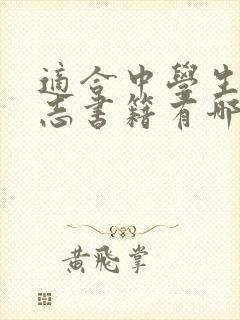 適合中學生
志書籍有哪
黃飛掌